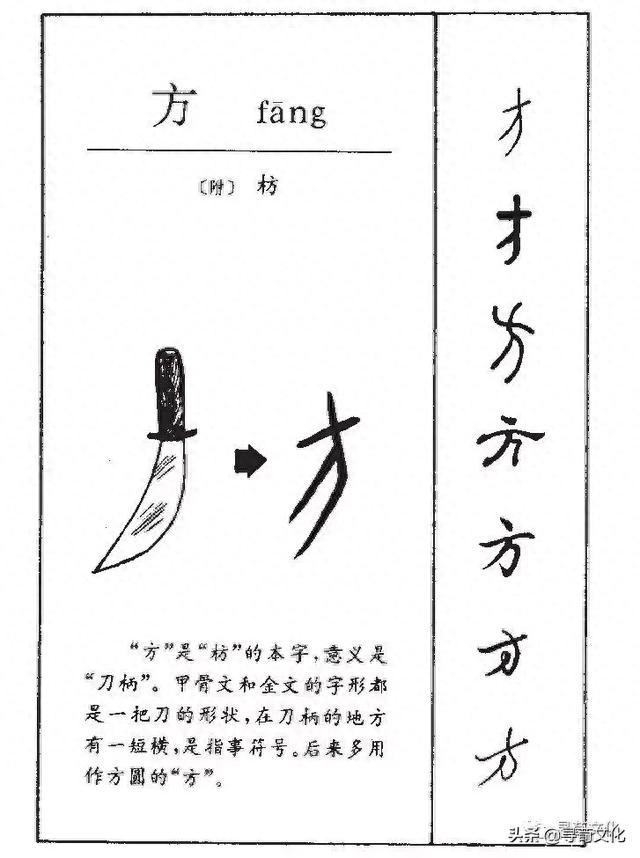 方 fāng
〔附〕 枋
“方”是“枋”的本字，意义是
“刀柄”。甲骨文和金文的字形都
是一把刀的形状，在刀柄的地方
有一短横，是指事符号。后来多用
作方圆的“方”。
头条@寻荀文化